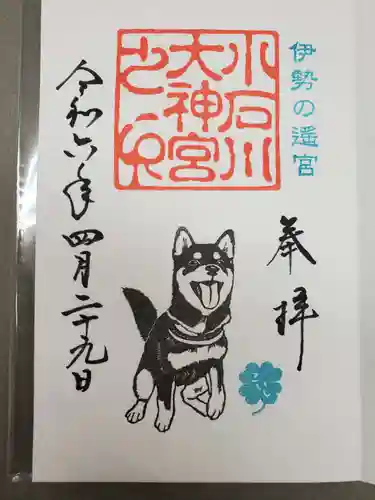 伊勢の遥宮
奉拝
小石川
大神宮
之印
令和六年四月二十九日